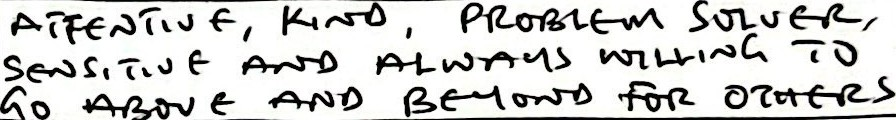 ATTENTIVE, KIND, PROBLEM SOLVER,
SENSITIVE AND ALWAYS WILLING TO
GO ABOVE AND BEYOND FOR OTHERS